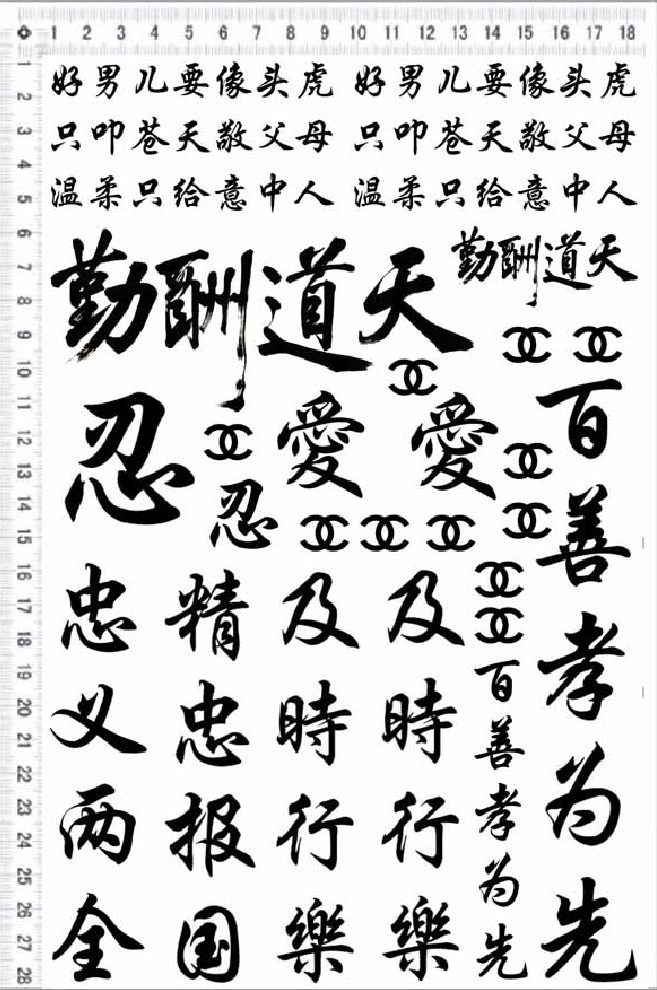 1 2 3 4 5 6 7 8 9 10 11 12 13 14 15 16 17 18
1 2 3 4 5 6 7 8 9 10 11 12 13 14 15 16 17 18 19 20 21 22 23 24 25 26 27 28
好男儿要像头虎 好男儿要像头虎
只叩苍天敬父母 只叩苍天敬父母
温柔只给意中人 温柔只给意中人
勤酬道天
勤酬道天
忍
忍
愛
愛
百善孝为先
忠义两全
精忠报国
及時行樂
及時行樂
百善孝为先